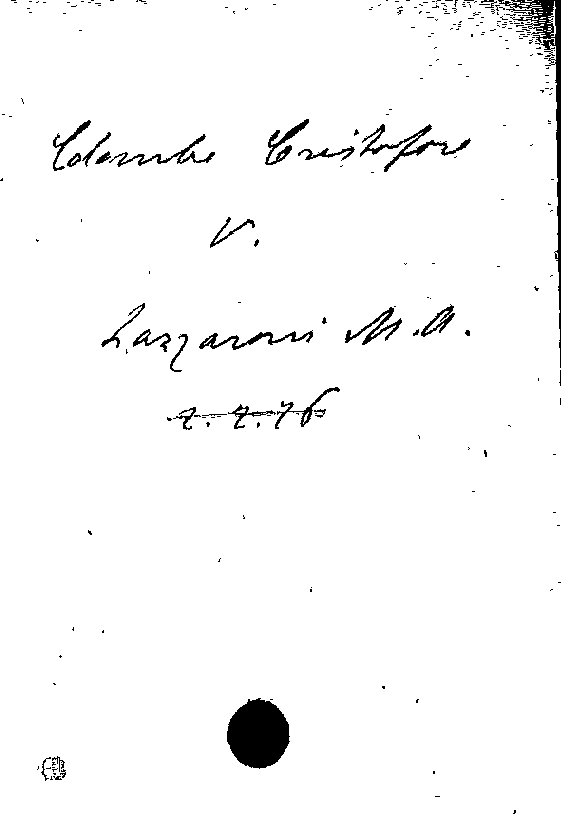 Colombo Cristofore
V.
Lazzaroni M.A.
2.2.76